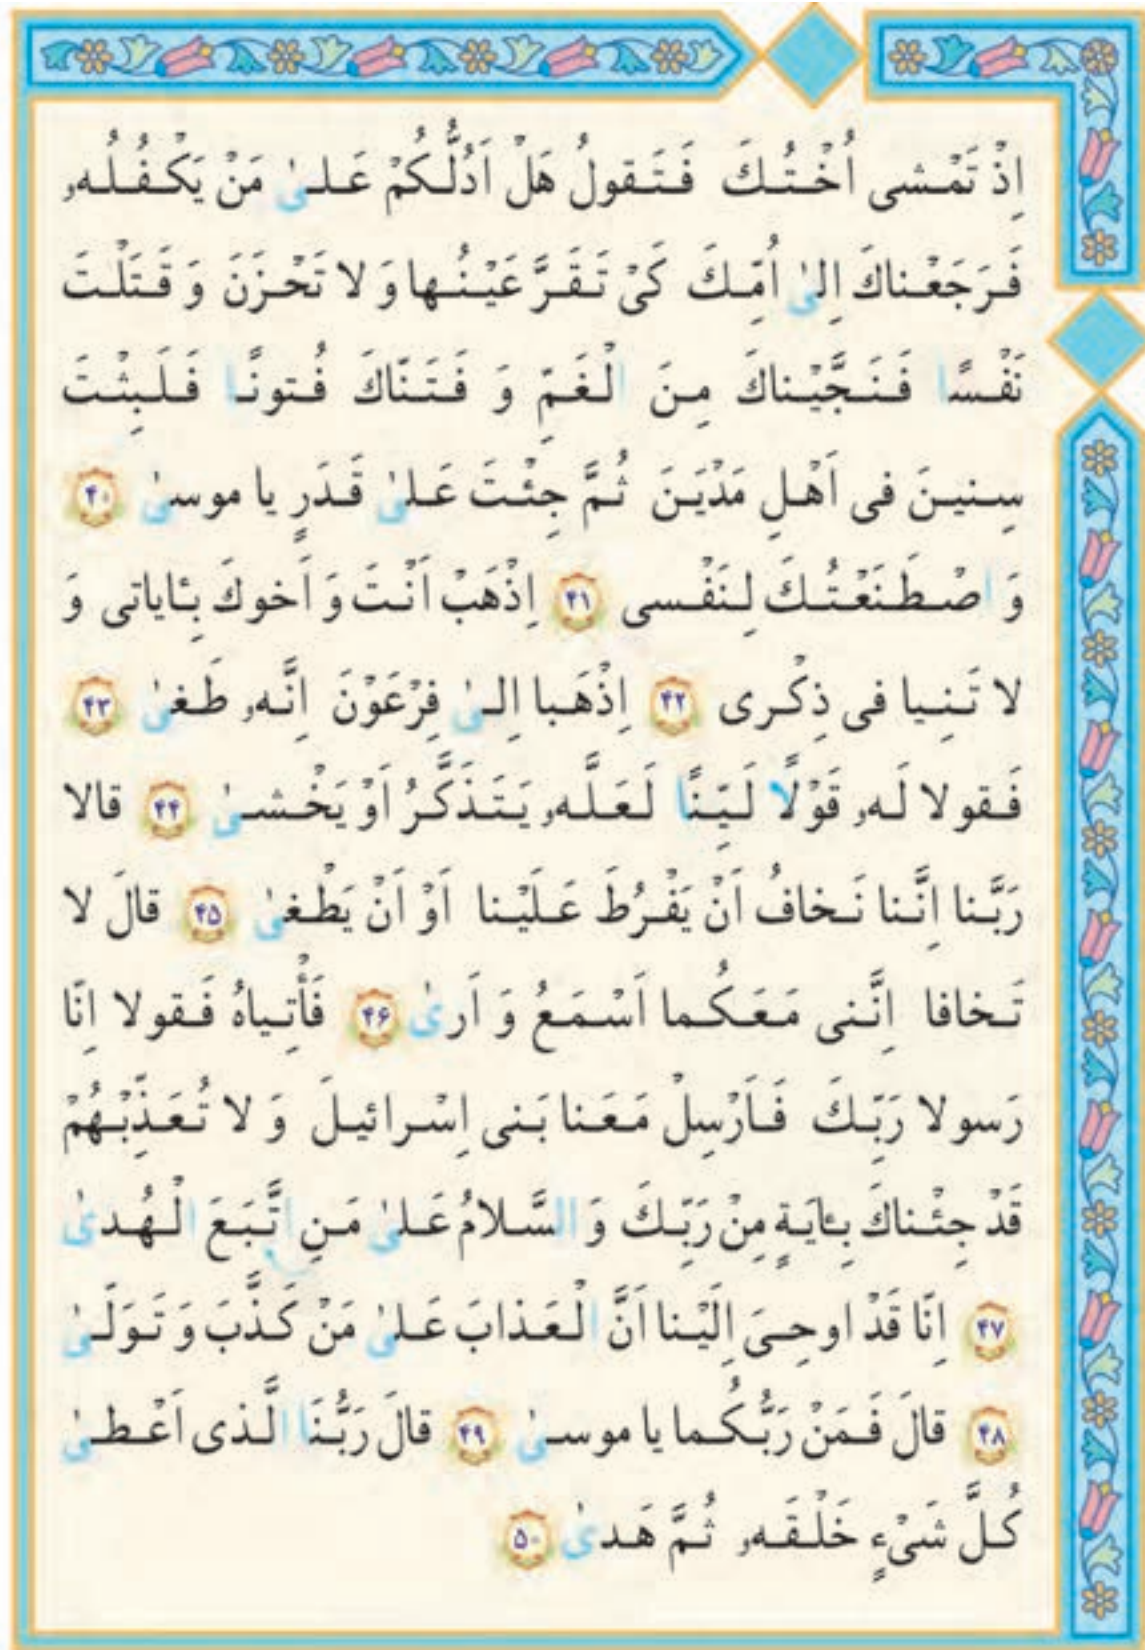 اِذْ تَمْشی اُخْتُكَ فَتَقولُ هَلْ اَدُلُّكُمْ عَلیٰ مَنْ یَكْفُلُهٗ
فَرَجَعْناكَ اِلیٰ اُمِّكَ كَیْ تَقَرَّ عَیْنُها وَ لا تَحْزَنَ وَ قَتَلْتَ
نَفْسًا فَنَجَّیْناكَ مِنَ الْغَمِّ وَ فَتَنّاكَ فُتونًا فَلَبِثْتَ
سِنینَ فی اَهْلِ مَدْیَنَ ثُمَّ جِئْتَ عَلیٰ قَدَرٍ یا موسیٰ ۴۰
وَ اصْطَنَعْتُكَ لِنَفْسی ۴۱ اِذْهَبْ اَنْتَ وَ اَخوكَ بِـٔایاتی وَ
لا تَنِیا فی ذِكْری ۴۲ اِذْهَبا اِلیٰ فِرْعَوْنَ اِنَّهٗ طَغیٰ ۴۳
فَقولا لَهٗ قَوْلًا لَیِّنًا لَعَلَّهٗ یَتَذَكَّرُ اَوْ یَخْشیٰ ۴۴ قالا
رَبَّنا اِنَّنا نَخافُ اَنْ یَفْرُطَ عَلَیْنا اَوْ اَنْ یَطْغیٰ ۴۵ قالَ لا
تَخافا اِنَّنی مَعَكُما اَسْمَعُ وَ اَریٰ ۴۶ فَأْتِیاهُ فَقولا اِنّا
رَسولا رَبِّكَ فَاَرْسِلْ مَعَنا بَنی اِسْرائیلَ وَ لا تُعَذِّبْهُمْ
قَدْ جِئْناكَ بِـٔایَةٍ مِنْ رَبِّكَ وَ السَّلامُ عَلیٰ مَنِ اتَّبَعَ الْهُدیٰ
۴۷ اِنّا قَدْ اوحِیَ اِلَیْنا اَنَّ الْعَذابَ عَلیٰ مَنْ كَذَّبَ وَ تَوَلّیٰ
۴۸ قالَ فَمَنْ رَبُّكُما یا موسیٰ ۴۹ قالَ رَبُّنَا الَّذی اَعْطیٰ
كُلَّ شَیْءٍ خَلْقَهٗ ثُمَّ هَدیٰ ۵۰